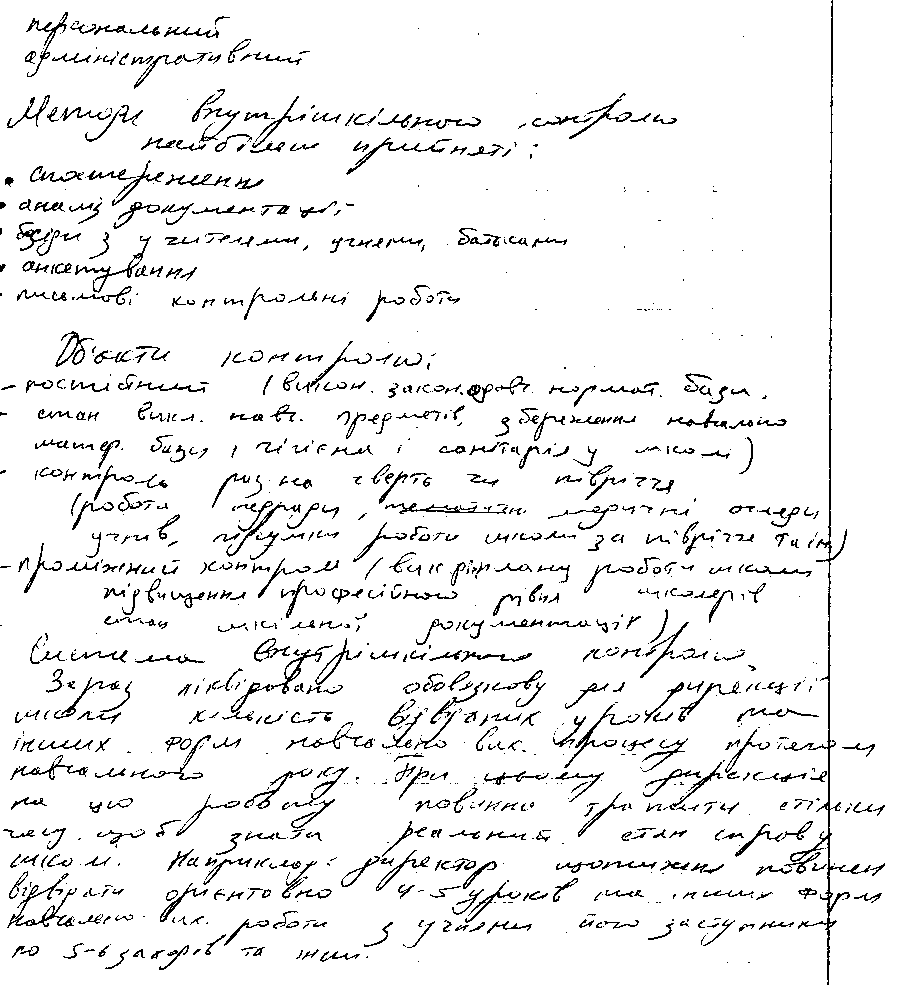 персональний
адміністративний
Методи внутрішкільного контролю
найбільш прийняті:
• спостереження
• аналіз документації
• бесіди з учителями, учнями, батьками
• анкетування
• письмові контрольні роботи
Об'єкти контролю:
- постійний (викон. законодавч. нормат. бази,
- стан викл. навч. предметів, збереження навчально
матер. бази, гігієна і санітарія у школі)
- контроль раз на чверть чи півріччя
(робота медичні огляди
учнів, підсумки роботи школи за півріччя та ін)
- проміжний контроль (вик плану роботи школи
підвищення професійного рівня
стан шкільної документації)
Система внутрішкільного контролю
Зараз ліквідовано обовязкову для дирекції
школи кількість відвідання уроків та
інших форм навчально вих. процесу протягом
навчального року. При цьому дирекція
на цю роботу повинна тратити стільки
часу щоб знати реальний стан справ у
школі. Наприклад: директор щотижня повинен
відвідати орієнтовно 4-5 уроків та інших форм
навчально вих. роботи з учнями його заступники
по 5-6 заходів та